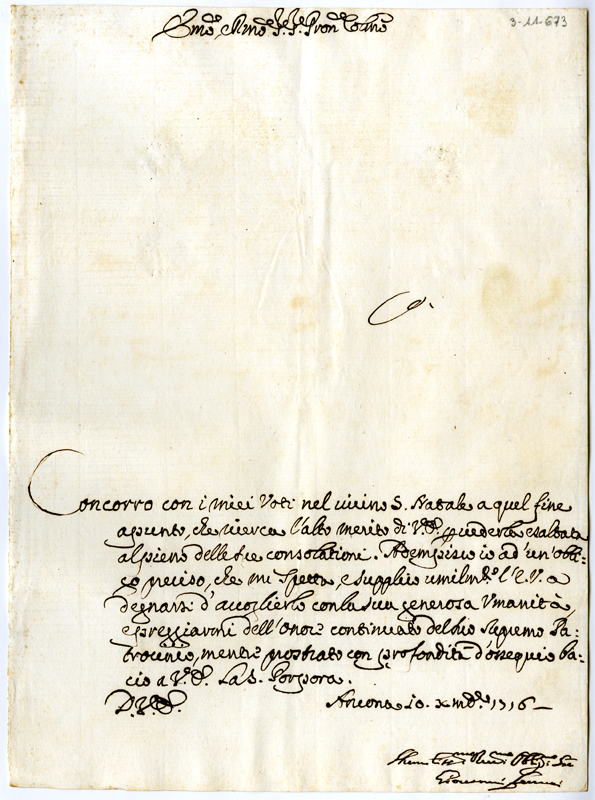 3-11-673
Emo. Rmo. Sr. Sr. Pron. Colmo.
Concorro con i miei Voti nel vicino S. Natale a quel fine
apunto, che cerca l'alto merito di V. E. vederla esaltata
al pieno delle sue consolationi. Adempisco io ad' un' obli:
go preciso, che mi spetta, e supplico umilmte. l'E. V. a
degnarsi d'accoglierlo con la sua generosa Vmanità,
e preggiarmi dell' onore continuato del suo supremo Pa:
trocinio, mentre prostrato con profondità d'ossequio ba:
cio a V. E. La S. Porpora.
D. V. E. Ancona 10. Xmbre. 1716
Giovanni